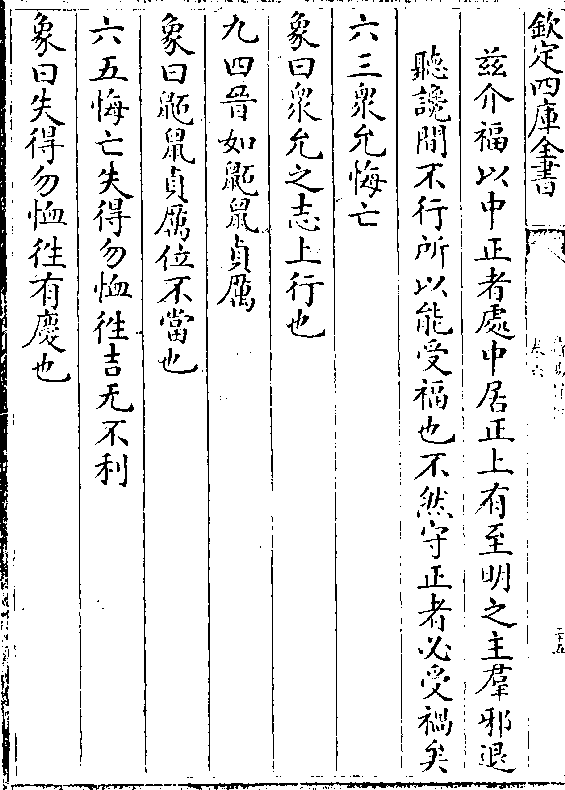 欽定四庫全書
茲介福以中正者處中居正上有至明之主羣邪退
聽讒間不行所以能受福也不然守正者必受禍矣
六三衆允悔亡
象曰衆允之志上行也
九四晉如鼫鼠貞厲
象曰鼫鼠貞厲位不當也
六五悔亡失得勿恤徃吉无不利
象曰失得勿恤徃有慶也
卷六
二十五